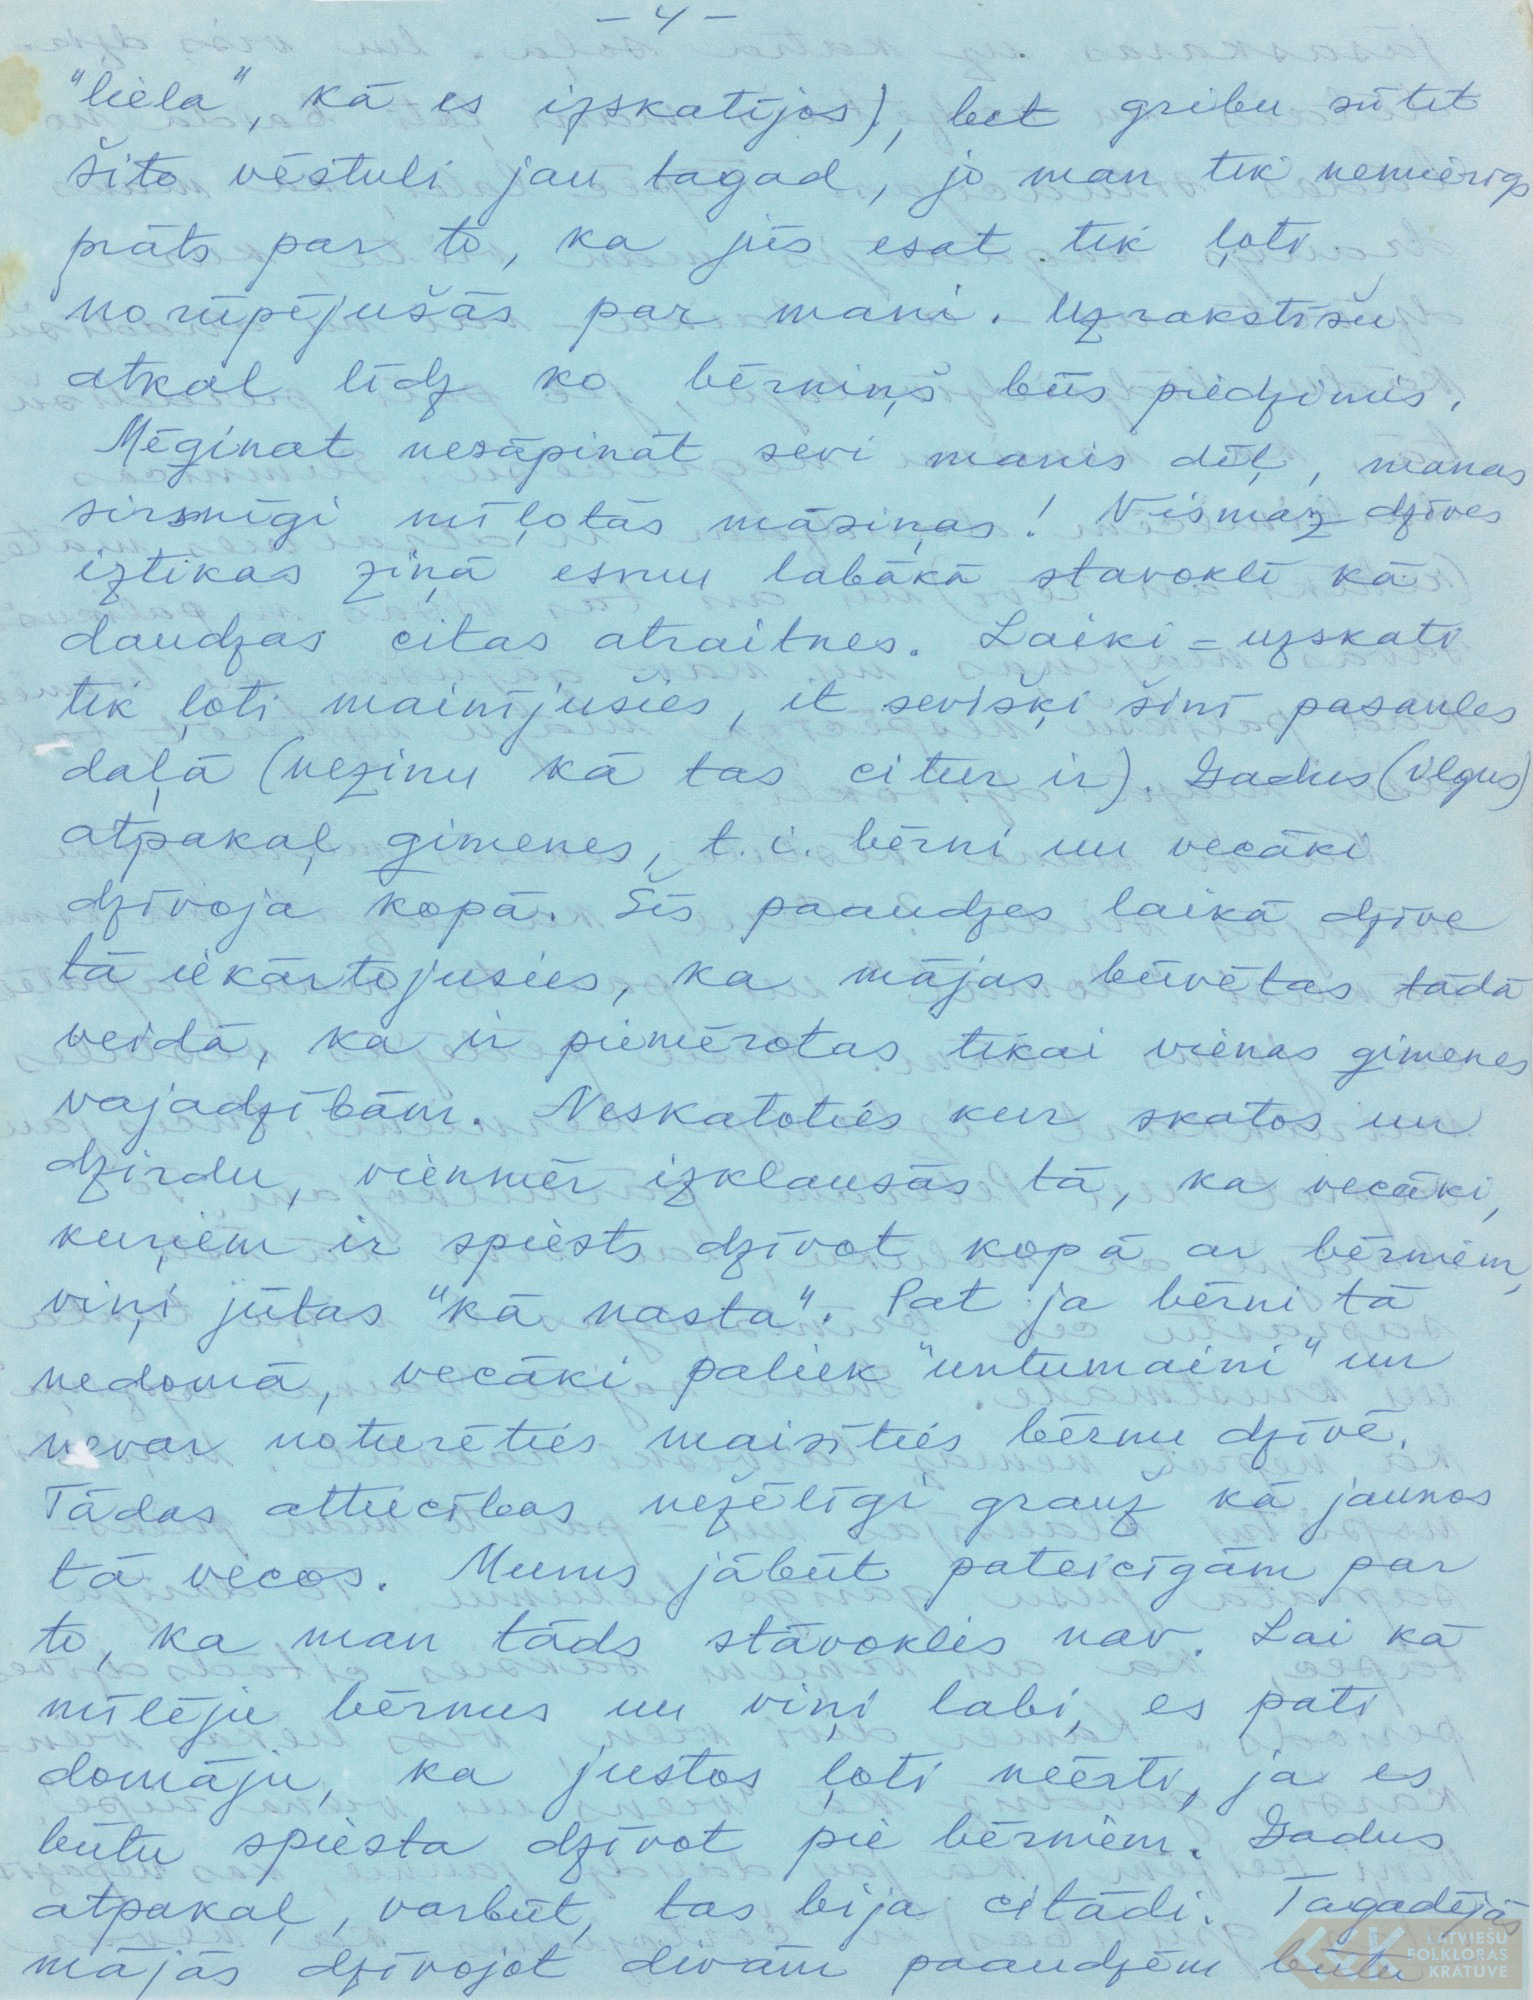 - 4 -
"liela", kā es izskatījos), bet gribu sūtīt
šito vēstuli jau tagad, jo man tik nemierīgs
prāts par to, ka jūs esat tik ļoti
norūpējušās par mani. Uzrakstīšu
atkal līdz ko bērniņš būs piedzimis.
Mēģinat nesāpināt sevi manis dēļ, manas
sirsnīgi mīļotās māsiņas! Vismaz dzīves
iztikas ziņā esmu labākā stāvoklī kā
daudzas citas atraitnes. Laiki = uzskati
tik ļoti mainījušies, it sevišķi šinī pasaules
daļā (nezinu kā tas citur ir). Gadus (ilgus)
atpakaļ gimenes, t. i. bērni un vecāki
dzīvoja kopā. Šīs paaudzes laikā dzīve
tā iekārtojusies, ka mājas būvētas tādā
veidā, ka ir piemērotas tikai vienas gimenes
vajadzībām. Neskatoties kur skatos un
dzirdu, vienmēr izklausās tā, ka vecāki,
kuŗiem ir spiests dzīvot kopā ar bērniem,
viņi jūtas "kā nasta". Pat ja bērni tā
nedomā, vecāki paliek "untumaini" un
nevar noturēties maisīties bērnu dzīvē.
Tādas attiecības nežēlīgi grauž kā jaunos
tā vecos. Mums jābūt pateicīgām par
to, ka man tāds stāvoklis nav. Lai kā
mīlēju bērnus un viņi labi, es pati
domāju, ka justos ļoti neērti, ja es
būtu spiesta dzīvot pie bērniem. Gadus
atpakaļ, varbūt, tas bija citādi. Tagadējās
mājās dzīvojot divām paaudzēm būtu
LATVIEŠU
FOLKLORAS
KRATUVE